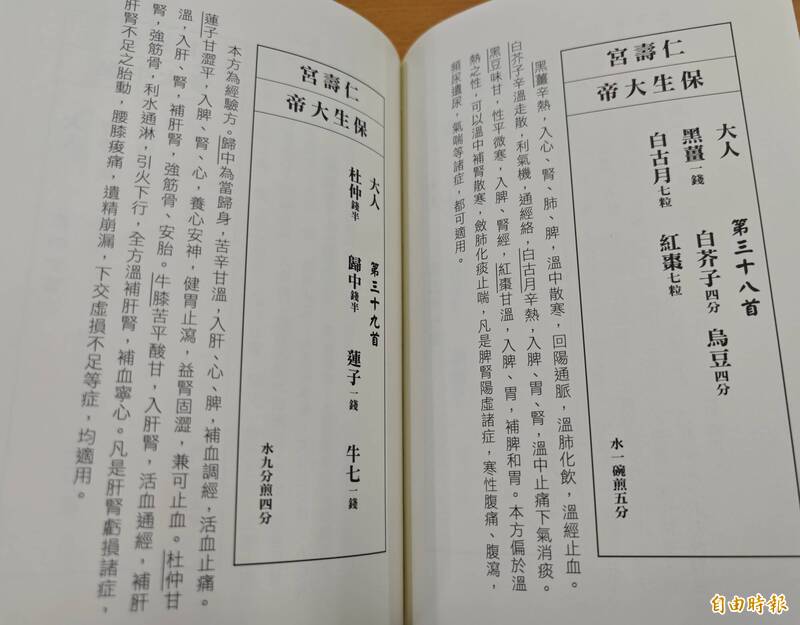 仁壽宮
保生大帝
大人　第三十八首
黑薑一錢　白芥子四分　烏豆四分
白古月七粒　紅棗七粒
水一碗煎五分
黑薑辛熱，入心、腎、肺、脾，溫中散寒，回陽通脈，溫肺化飲，溫經止血。
白芥子辛溫走散，利氣機，通經絡，白古月辛熱，入脾、胃、腎，溫中止痛下氣消痰。
黑豆味甘，性平微寒，入脾、腎經，紅棗甘溫，入脾、胃，補脾和胃。本方偏於溫
熱之性，可以溫中補腎散寒，斂肺化痰止喘，凡是脾腎陽虛諸症，寒性腹痛、腹瀉，
頻尿遺尿，氣喘等諸症，都可適用。
仁壽宮
保生大帝
大人　第三十九首
杜仲錢半　歸中錢半　蓮子一錢　牛七一錢
水九分煎四分
本方為經驗方。歸中為當歸身，苦辛甘溫，入肝、心、脾，補血調經，活血止痛。
蓮子甘澀平，入脾、腎、心，養心安神，健胃止瀉，益腎固澀，兼可止血。杜仲甘
溫，入肝、腎，補肝腎，強筋骨、安胎。牛膝苦平酸甘，入肝腎，活血通經，補肝
腎，強筋骨，利水通淋，引火下行，全方溫補肝腎，補血寧心。凡是肝腎虧損諸症，
肝腎不足之胎動，腰膝痠痛，遺精崩漏，下交虛損不足等症，均適用。
自由時報